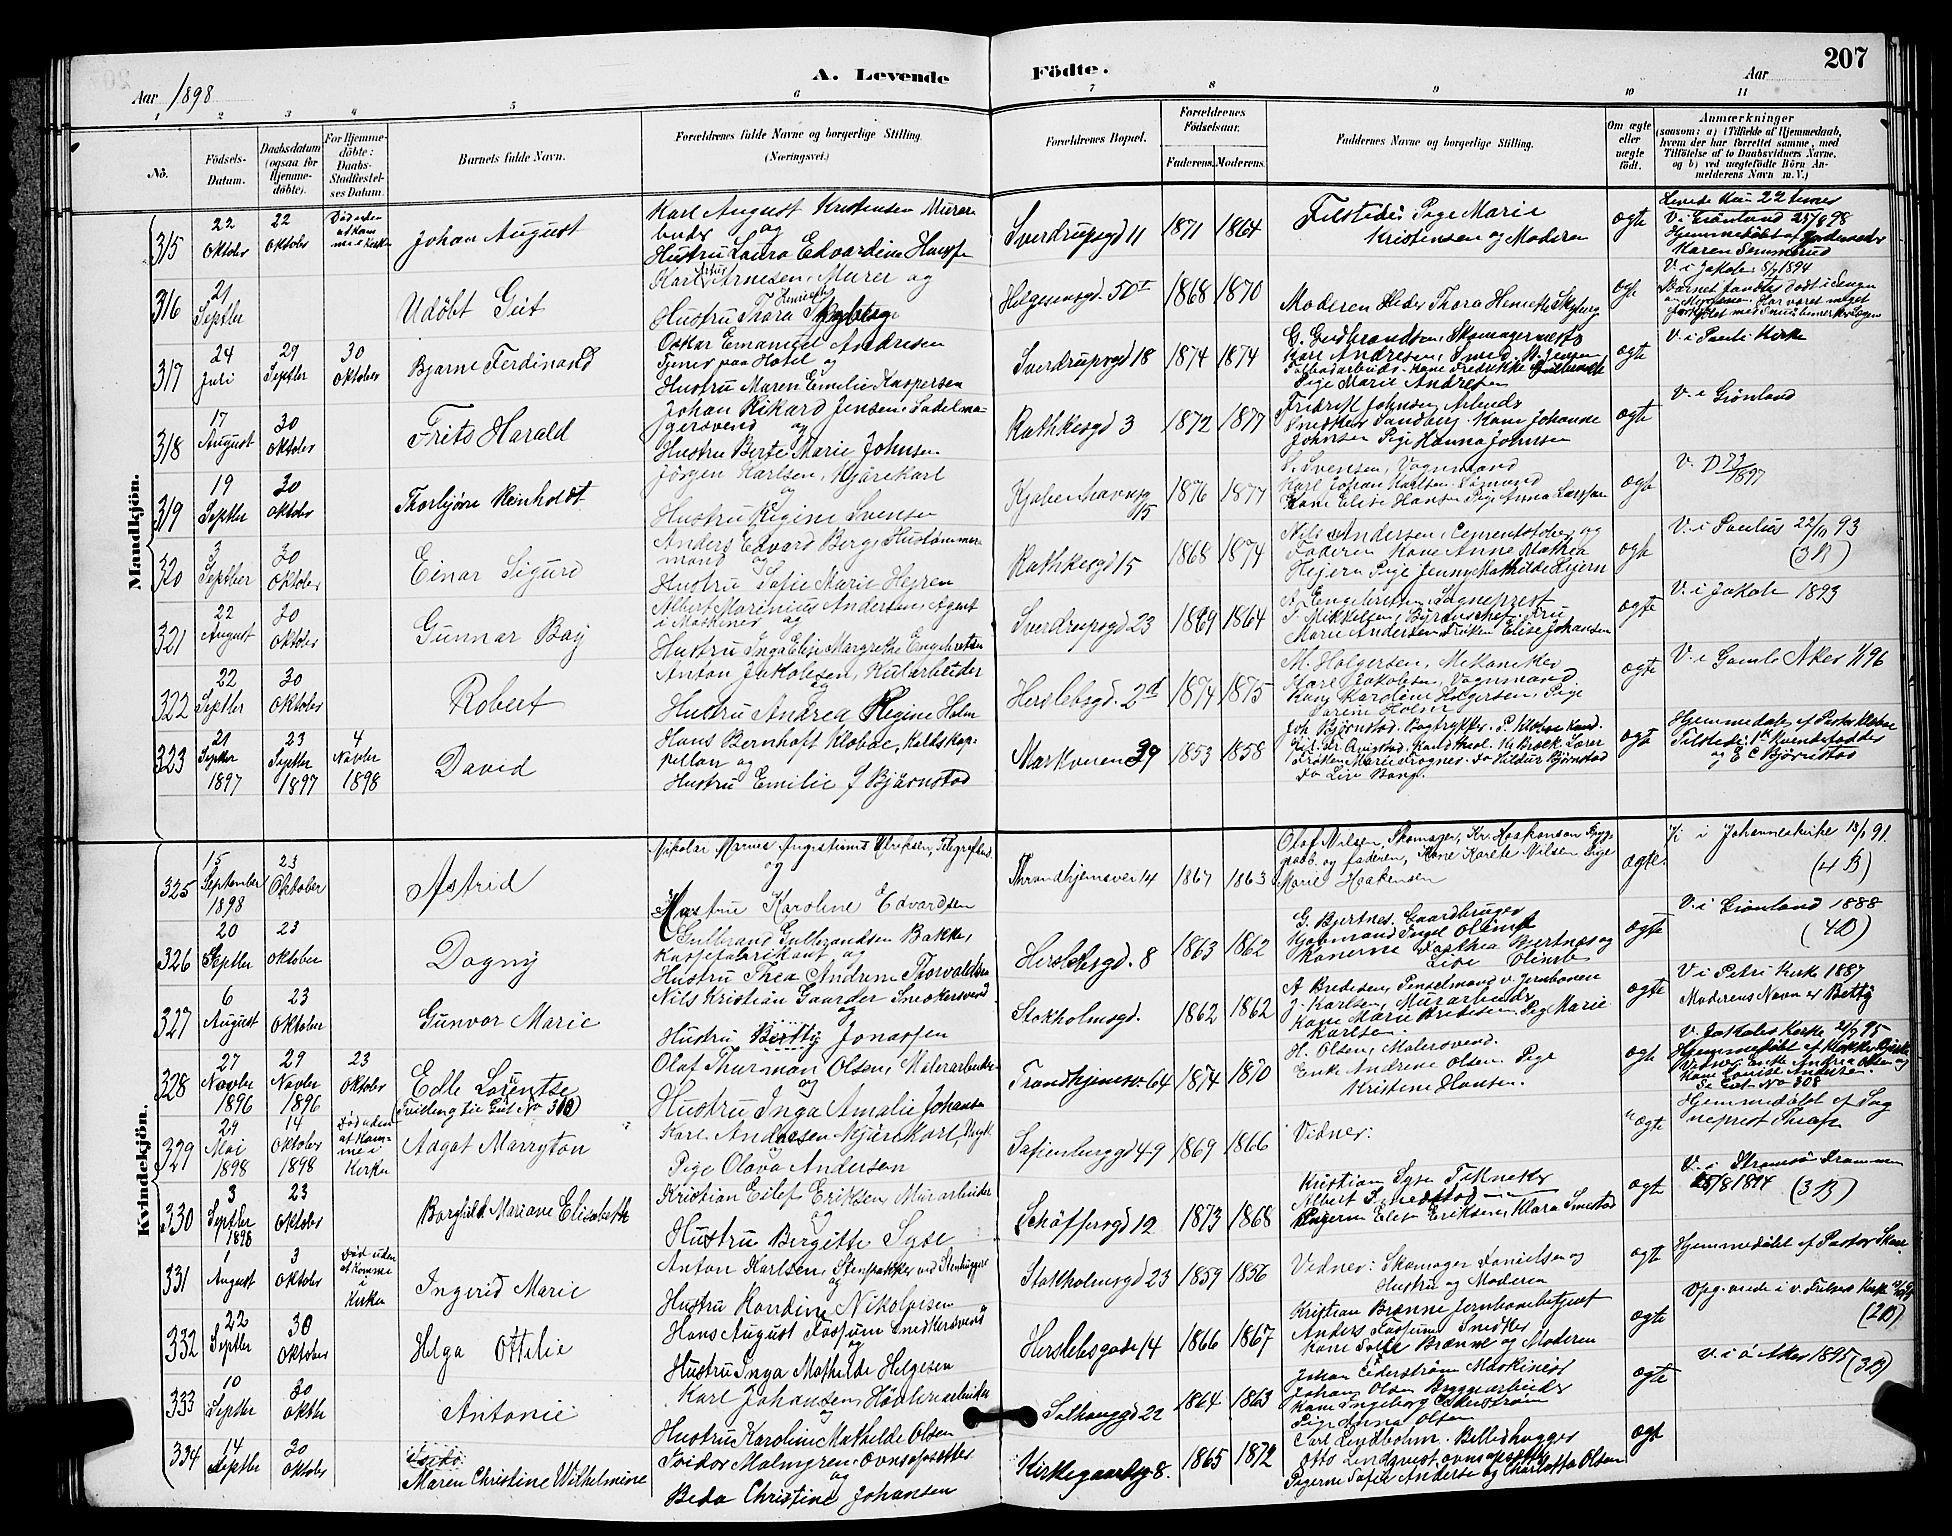 207
A. Levende Födte.
Aar 1898
Aar
1 2 3 4 5 6 7 8 9 10 11
No.
Födsels-Datum.
Daabsdatum (ogsaa for Hjemmedöbte).
For Hjemmedöbte: Daabs-Stadfæstelses Datum.
Barnets fulde Navn.
Forældrenes fulde Navne og borgerlige Stilling. (Næringsvei.)
Forældrenes Bopæl.
Forældrenes Födselsaar.
Faderens. Moderens.
Faddernes Navne og borgerlige Stilling.
Om ægte eller uægte födt.
Anmærkninger (saasom: a) i Tilfælde af Hjemmedaab, hvem der har forrettet samme, med Tilföielse af to Daabsvidners Navne, og b) ved uægtefödte Börn Anmelderens Navn m. V.)
Mandkjön.
315
22 Oktober
22 Oktober
Död uden at komme i Kirken
Johan August
Karl August Kristensen Murarbeider og
Hustru Laura Edvardine
Sverdrupsgd 11
1871
1864
Tilstede: Pige Marie
Kristensen og Moderen
ægte
Levede kun 22 timer
V. i Grönland 25/9 98
Hjemmedöbt af Jordemoder
Karen Semmerud
316
21 Septbr
Udöbt Gut
Karl Arnesen, Murer og
Hustru Thora Henriette Skyberg
Helgesensgd. 50
1868
1870
Moderen Heder Thora Henriette Skyberg
ægte
V. i Jakob 8/7 1894
Barnet fandtes dödt i sengen
317
24 Juli
29 Septbr
30 Oktober
Bjarne Ferdinand
Oskar Emanuel Andresen
Tjener paa Hotel og
Hustru Maren Emelie Kaspersen
Sverdrupsgd 18
1874
1874
G. Gudbrandsen, Skomagermester
Karl Andresen, Smed
Pige Marie Andresen
ægte
V. i Pauli Kirke
318
17 August
30 Oktober
Frits Harald
Johan Rikard Jensen, Sadelmagersvend og
Hustru Berte Marie Johnsen
Rathkesgd 3
1872
1877
Fridrik Johnsen Arbeider
Snedker Sandberg. Kone Johanne
Johnsen Pige Hanna Johnsen
ægte
V. i Grönland
319
19 Septbr
30 Oktober
Thorbjörn Reinholdt
Jörgen Karlsen, Kjörekarl
og
Hustru Regine Svensen
Kjøbenhavnsg 15
1876
1877
S. Svensen, Vognmand
Karl Johan Karlsen Sömand
Kone Elise Hansen Pige Anna Larsen
ægte
V.
320
3 Septbr
30 Oktober
Einar Sigurd
Anders Edvard Berg, Hustömmermand og
Hustru Sofie Marie Hejren
Rathkesgd 15
1868
1874
Nils Andersen, Cementstöber og
Faderen Kone Anne Mathea
Hejern Pige Jenny Mathilde Hejern
ægte
V. i Paulus 22/10 93
(3 B)
321
22 August
30 Oktober
Gunnar Bay
Albert Marinius Andersen, Agent
i Maskiner og
Hustru Inga Elise Margrethe Engebretsen
Sverdrupsgd 23
1869
1864
A. Engebretsen, Sogneprest
T. Mikkelsen, Byraachef, Fru
Marie Andersen Fröken Elise Johansen
ægte
V. i Jakob 1893
322
22 Septbr
30 Oktober
Robert
Anton Jakobsen, Kularbeider
og
Hustru Andrea Regine Holm
Herslebsgd. 2d
1874
1875
M. Holgersen, Mekaniker
Karl Jakobsen, Vognmand
Kone Karoline Holgersen, Pige
ægte
V. i Gamle Aker 96
323
21 Septbr 1897
23 Septbr 1897
4 Novbr 1898
David
Hans Bernhoft Klobae, Kaldskapellan og
Hustru Emilie f Bjørnstad
Markveien 39
1853
1858
Joh. Bjørnstad. Bogtrykker
Fröken Marie Frogner. Do Hildur Bjørnstad
Do Live Bang.
ægte
Hjemmedøbt af Pastor Klobae
Tilstede:
og E C Bjørnstad
Kvindekjön.
325
15 September 1898
23 Oktober
Astrid
og
Hustru Karoline Edvardsen
Throndhjemsvei 14
1867
1863
Olaf Nilsen, Skomager, Kr. Haakonsen
og faderen, Kone Karete Nilsen Pige
Marie Haakensen
ægte
V. i Johanneskirke 13/1 91
(4 B)
326
20 Septbr
23 Oktober
Dagny
Gulbrand Gulbrandsen Bakke,
og
Hustru Thea Andrine Thorvaldsen
Herslebsgd. 8
1863
1862
G. Bjertnes. Gaardbruger
Konerne Dorthea Bjertnes og
ægte
V. i Grönland 1888
(4 B)
327
6 August
23 Oktober
Gunvor Marie
Nils Kristian Gaarder Snedkersvend
og
Hustru Betty Jonassen
Stokholmsgd.
1862
1862
A Bredesen, Penselmand v. Jernbanen
J. Karlsen, Murarbeider
Kone Marie Bredesen Pig Marie
Karlsen.
ægte
V i Petri Kirke 1887
Moderens Navn er Betty
328
27 Novbr 1896
29 Novbr 1896
23 Oktober
Edle Lorentse
(Tvilling til Gut No 310)
Olaf Thurman Olsen, Malerarbeider
og
Hustru Inga Amalie Johansen
Trondhjemsv 64
1874
1870
H. Olsen, Malersvend.
Enke Andrine Olsen. Pige
Kristine Hansen.
ægte
V. Jakobs Kirke 21/9 95
Hjemmedöbt af Klokker
Kone Louise Andersen.
No 308
329
29 Mai 1898
14 Oktober 1898
Död uden at komme i Kirken
Aagot Marryton
Karl Andresen Kjörekarl, Ungk.
Pige Olava Andersen
Sofienberggd 49
1869
1866
Vidner:
uægte
Hjemmedöbt af Sogneprest Thrap
330
3 Septbr 1898
23 Oktober
Borghild Mariane Elisabeth
Kristian Eilef Eriksen, Murarbeider
og
Hustru Bergitte Syse
Schöffersgd 12
1873
1868
Kristian Syse Tekniker
Albert Smedstad
Pigerne Elise Eriksen, Klara Smestad
ægte
V. i Strömsö Drammen
25/8 1894 (3 B)
331
1 August
3 Oktober
Död uden at komme i Kirken
Ingerid Marie
Anton Karlsen, Stenpakker ved Stenhuggeri
og
Hustru Randine Nikolaisen
Stokholmsgd 23
1859
1856
Vidner: Skomager Danielsen og
Hustru og Moderen
ægte
Hjemmedöbt af Pastor Skaar.
332
22 Septbr
30 Oktober
Helga Ottilie
Hans August Fossum Snedkersvend
og
Hustru Inga Mathilde Helgesen
Herslebsgade 14
1866
1867
Kristian Brænne Jernbanebetjent
Anders Fossum Snedker
Kone Sofie Brænne og Moderen
ægte
Opg. viede i v. Frelsers Kirke
(2 B)
333
10 Septbr
30 Oktbr
Antonie
Karl Johansen, Hövleriarbeider
og
Hustru Karoline Mathilde Olsen
Solhauggd 22
1864
1863
Johan Cederström Maskinist
Johan Olsen Bryggearbeider
Kone Ingeborg Cederström
Pige Anna Olsen
ægte
V. i ö Aker 1895 (3 B)
334
14 Septbr
30 Oktober
Maren Christine Wilhelmine
Tvidor Malmgren Ovnsopsetter
og
Beda Christine Johansen
Kirkegaardsg 8.
1865
1872
Carl Lindbohm. Billedhugger
Otto Lindqvist ovnsopsetter
Pigerne Sofie Andersen og Charlotta Olsen
ægt